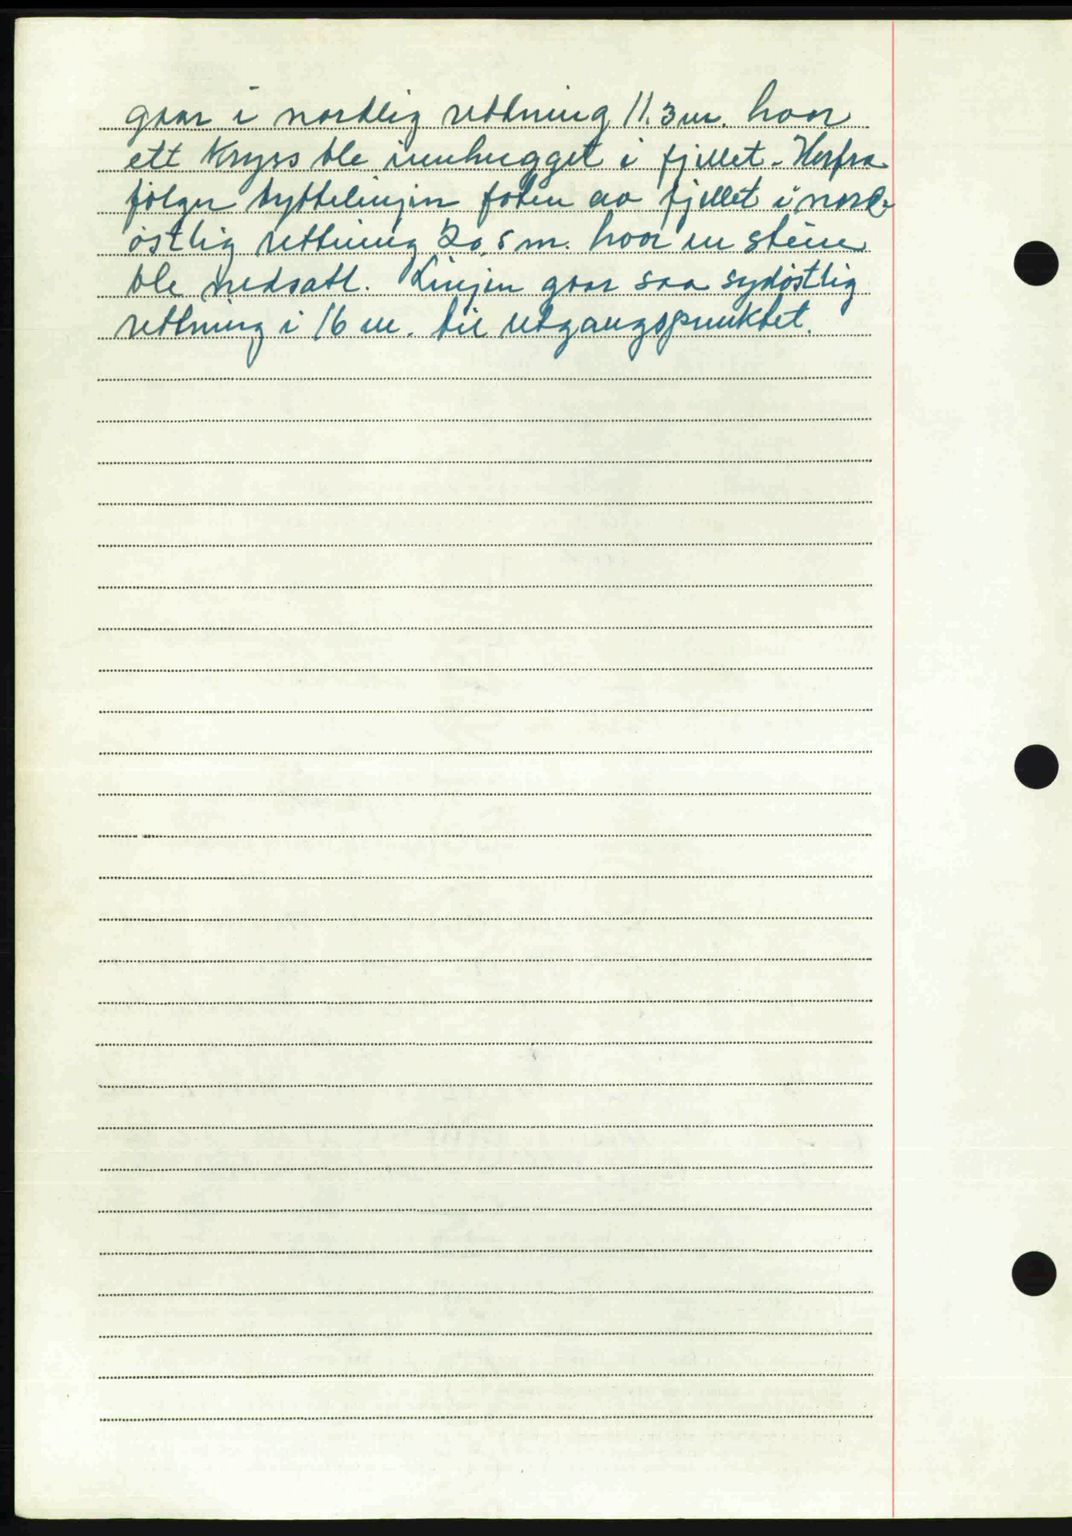 gaar i nordlig rettning 11.3 m. hvor
ett kryss ble innhugget i fjellet. Herfra
følger byttelinjen foten av fjellet i nord-
østlig rettning 20,5 m. hvor en stein
ble nedsatt. Linjen gaar saa sydøstlig
rettning i 16 m. til utgangspunktet.